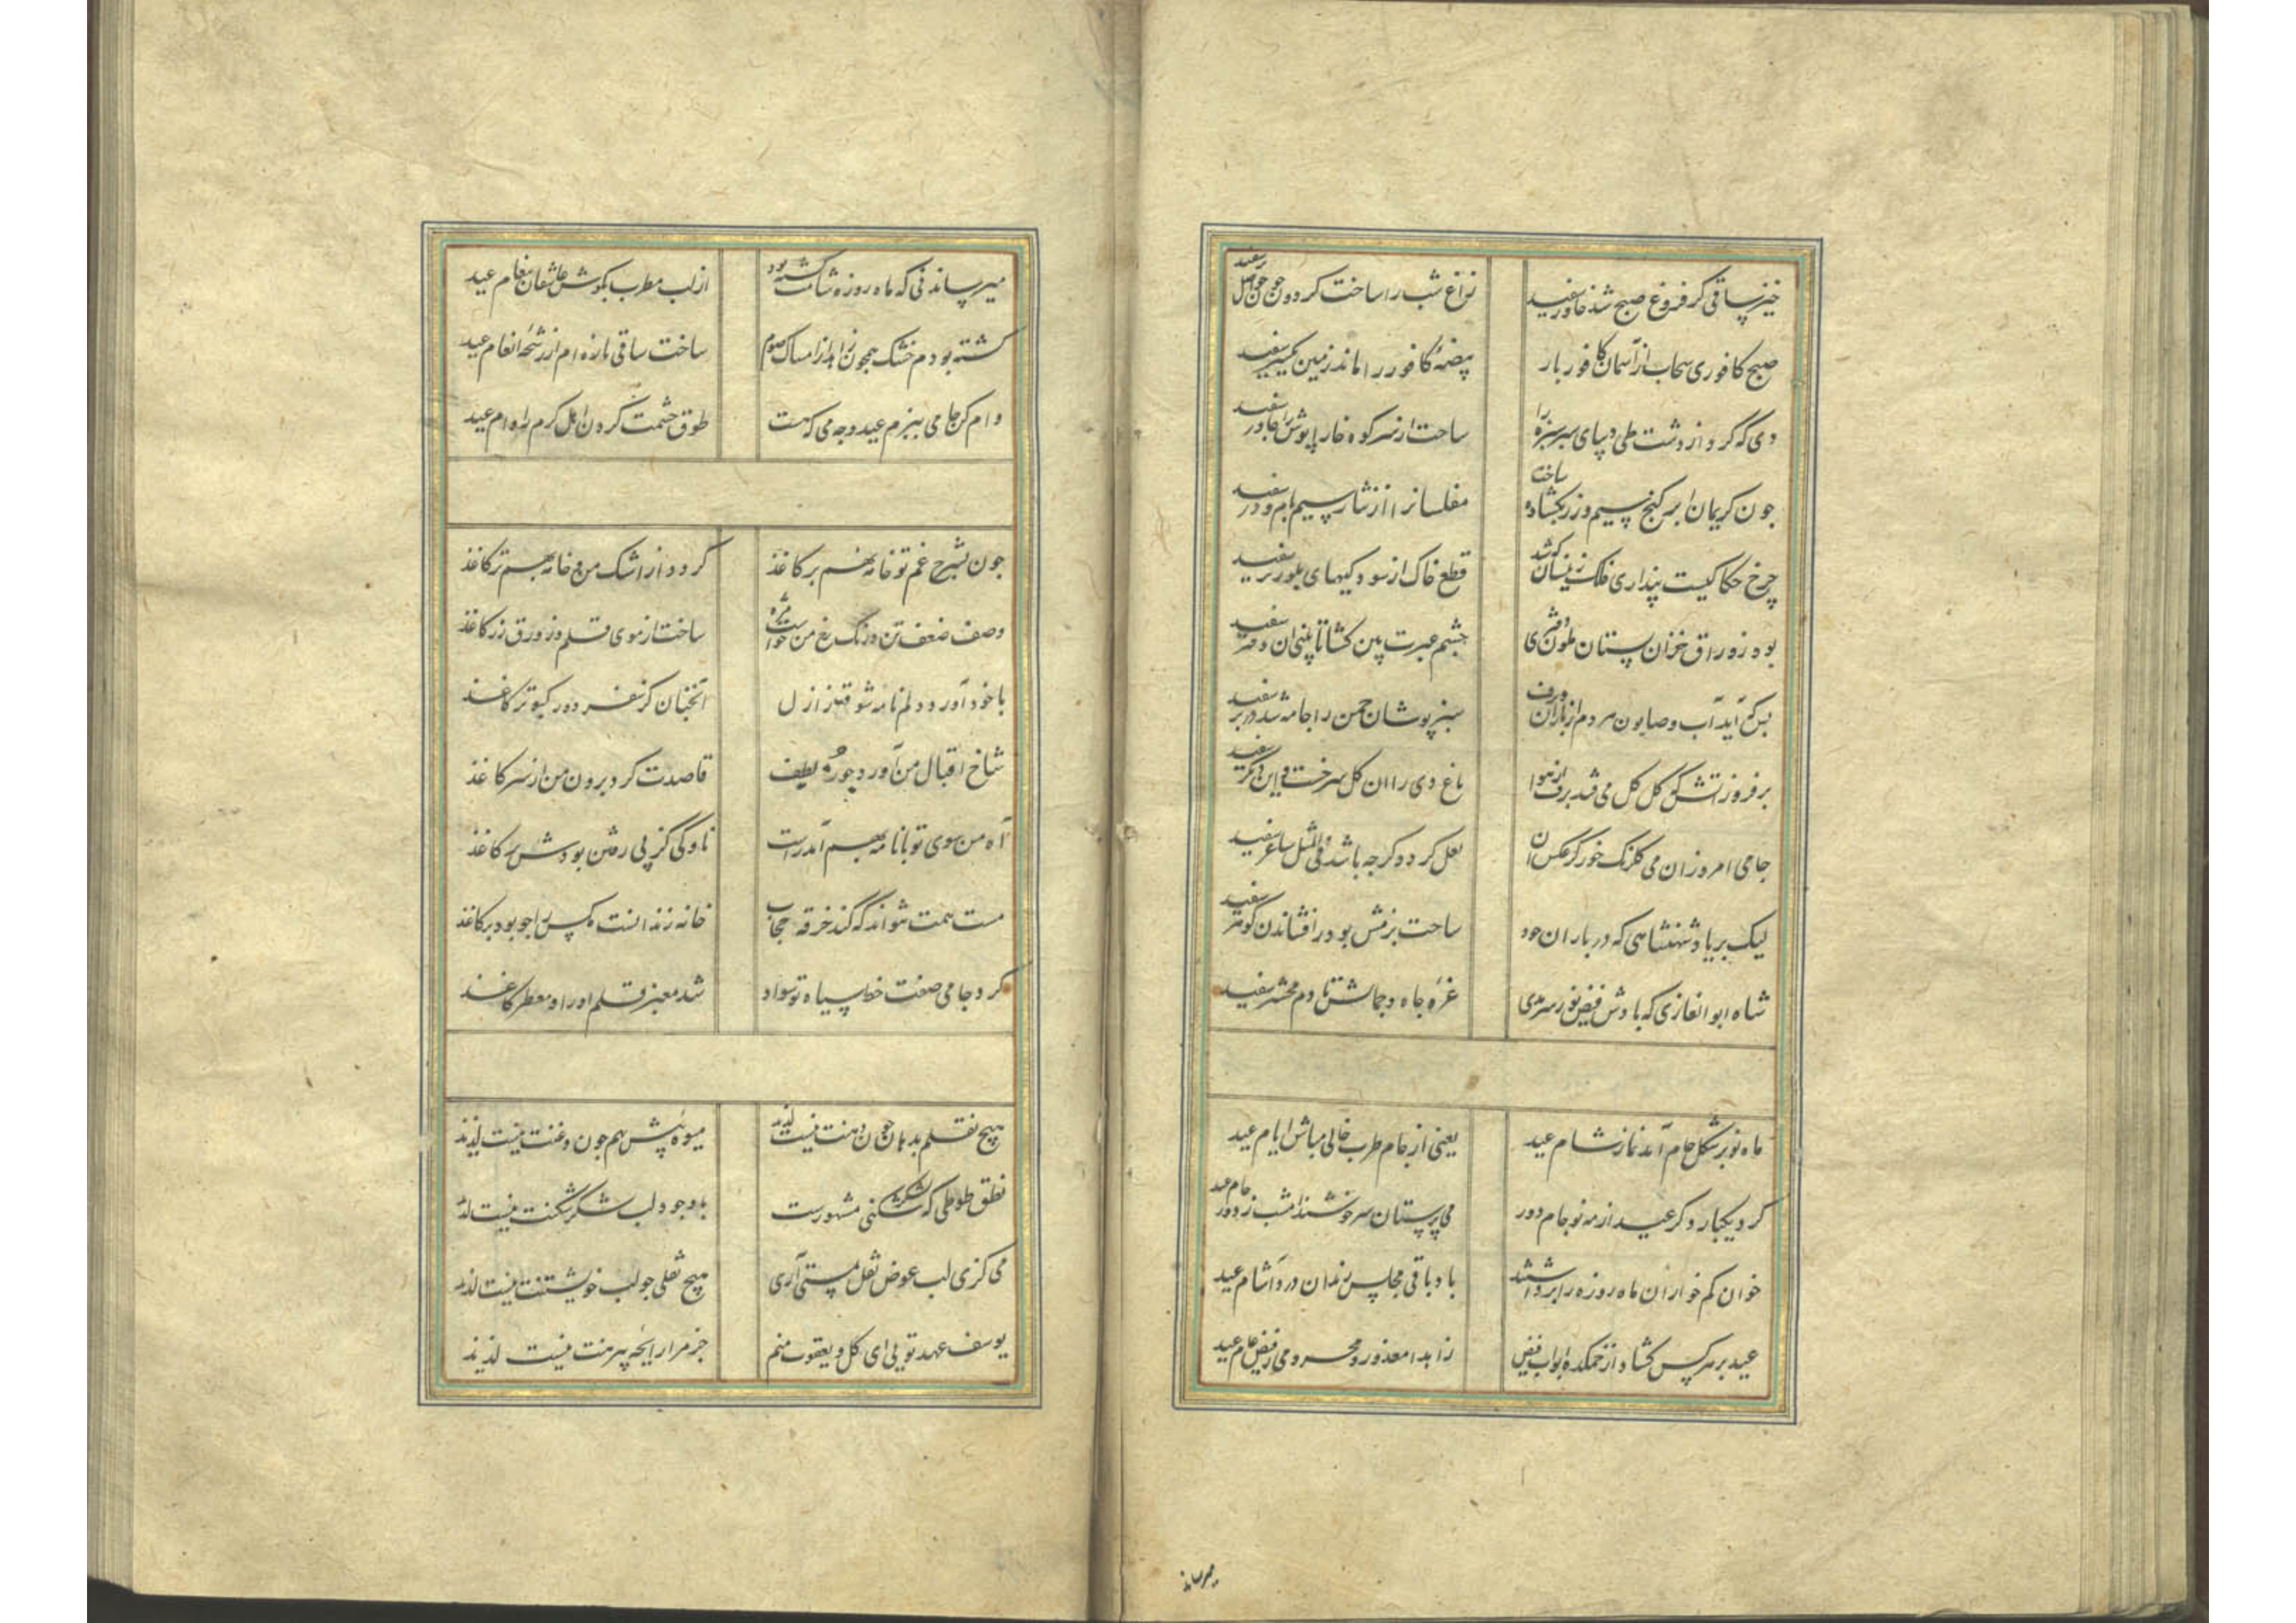 خیز ساقی کز فروغ صبح شد خاور سفید
زاغ شب را ساخت کردون چون حواصل پر سفید
صبح کافوری سحاب از آسمان کافور بار
بیضهٔ کافور را ماند زمین یکسر سفید
دی که کرد از دشت طی دیبای سبز سبزه را
ساخت از سر کوه خارا پوش را چادر سفید
چون کریمان ابر کنج سیم و زر بکشاده ساخت
مفلسانرا از نثار سیم بام و در سفید
چرخ حکاکیست پنداری فلک زینسان که شد
قطع خاک از سوده کیهای بلور تر سفید
بود ز اوراق خزان بستان ملون دفتری
چشم عبرت بین کشا تا بینی آن دفتر سفید
بس که آید آب و صابون هر دم از باران و برف
سبز پوشان چمن را جامه شد در بر سفید
بر فروز آتش که کل کل می فتد برف از هوا
باغ دی را آن کل سرخست و این دیکر سفید
جامی امروز آن می کلرنک خور کز عکس آن
لعل کردد کرچه باشد فی المثل ساغر سفید
لیک بر یاد شهنشاهی که در باران جود
ساحت بزمش بود ز افشاندن کوهر سفید
شاه ابوالغازی که بادش فیض نور سرمدی
غره جاه و جمالش تا دم محشر سفید
ماه نو بر شکل جام آمد نماز شام عید
یعنی از جام طرب خالی مباش ایام عید
کرد یکبار دکر عید از مه نو جام دور
می پرستان سرخوشند امشب ز دور جام عید
خوان کم خواران ماه روزه را برداشتند
باد باقی مجلس رندان درد آشام عید
عید بر هر کس کشاد از خمکده ابواب فیض
زاهدا معذور و محرومی ز فیض عام عید
میرساند
میرساند نی که ماه روزه شامت کشته بود
از لب مطرب بکوش عاشقان پیغام عید
کشته بودم خشک همچون زاهد از امساک صوم
ساخت ساقی تازه ام از رشحهٔ انعام عید
وام کن جامی ببزم عید وجه می که هست
طوق حشمت کردن اهل کرم را وام عید
چون بشرح غم تو خامه نهم بر کاغذ
کردد از اشک من و خامه بهم تر کاغذ
وصف ضعف تن و رنک رخ من خواست مژه
ساخت از موی قلم وز ورق زر کاغذ
با خود آورد دلم نامه شوقت ز ازل
آنچنان کز سفر دور کبوتر کاغذ
شاخ اقبال من آورد چو ره لطف
قاصدت کرد برون من از سر کاغذ
آه من سوی تو با نامه بهم آمد راست
ناوکی کز پی رفتن بودش پر کاغذ
مست همت شواند که کند خرقه حجاب
خانه زندانست کس را چو بود بر کاغذ
کرد جامی صفت خط سیاه تو سواد
شد معنبر قلم او را و معطر کاغذ
هیچ نقلم بدهان چون دهنت نیست لذیذ
میوه پیش هم چون ذقنت نیست لذیذ
نطق طوطی که بشکر شکنی مشهورست
با وجود لب شکر شکنت نیست لذیذ
می کزی لب عوض نقل بمستی آری
هیچ نقلی چو لب خویشتنت نیست لذیذ
یوسف عهد تویی ای کل و یعقوب منم
جز مرا رایحه پیرهنت نیست لذیذ